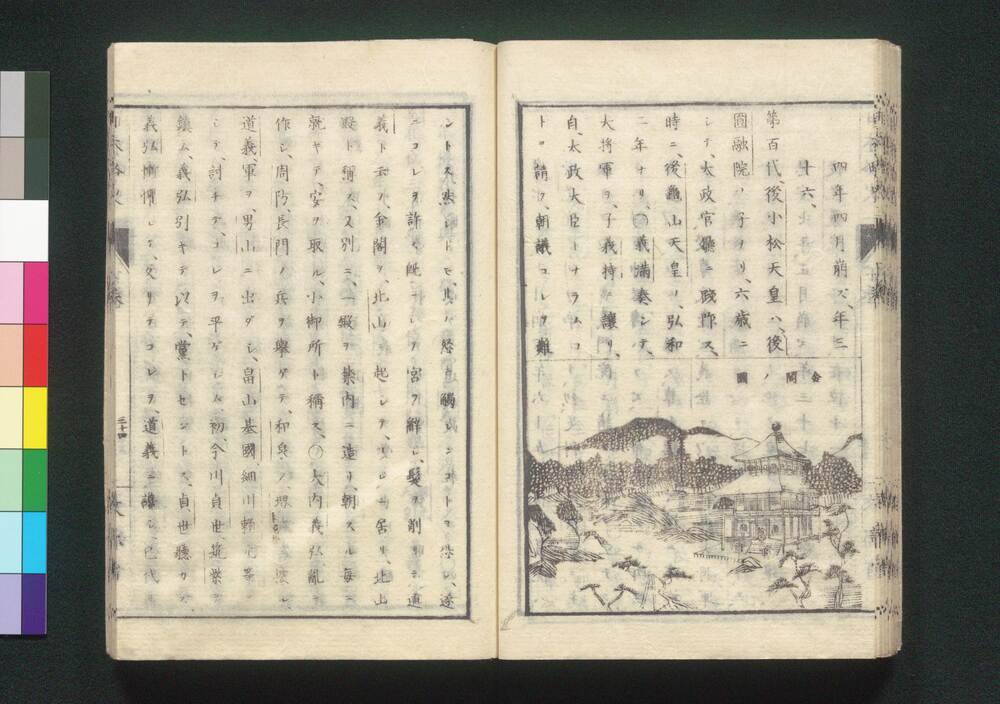 四年四月崩ズ、年三
十六、
第百代後小松天皇ハ、後
圓融院ノ子ナリ、六歳ニ
シテ、太政官廳ニ即位ス、
時ニ、後龜山天皇ノ、弘和
二年ナリ、〇義滿奏シテ、
大將軍ヲ、子義持ニ讓リ、
自、太政大臣トナラムコ
トヲ請フ、朝議コレヲ難
金閣ノ圖
ントス然レドモ、其ノ怒ニ觸レンコトヲ恐レ、遂
ニコレヲ許ス、既ニシテ、官ヲ辭シ、髮ヲ削リテ、道
義ト云フ、金閣ヲ、北山ニ起シテ、コレニ居リ、北山
殿ト稱ス、又別ニ、一殿ヲ禁内ニ造リ、朝スル毎ニ、
就キテ、安ヲ取ル、小御所ト稱ス、〇大内義弘亂ヲ
作シ、周防長門ノ兵ヲ擧ゲテ、和泉ノ
道義、軍ヲ、男山ニ出ダシ、畠山基國、細川
シテ、討チテ、コレヲ平ゲシム、初、今川貞世筑紫ヲ
鎭ム、義弘引キテ、以テ、黨トセントス、貞世聽カズ、
義弘慚懼シテ、反リテコレヲ、道義ニ譖シ、己代
三十四